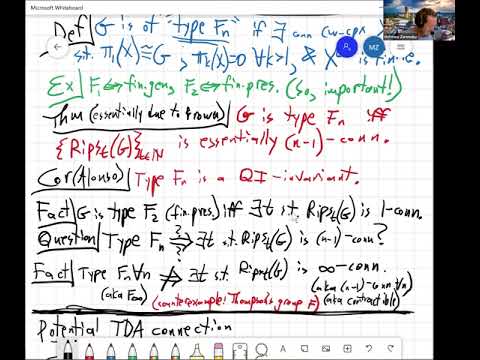 Microsoft Whiteboard
Def G is of "type Fn" if ∃ conn CW-cpx
s.t. π₁(X)≅G, πₖ(X)=0 ∀k>1, & X is finite.
Ex F₁⇔fin.gen, F₂⇔fin.pres. (so, important!)
Thm (essentially due to Brown) G is type Fn iff
{Ripsₜ(G)}ₜ∈ℕ is essentially (n-1)-conn.
Cor (Alonso) Type Fn is a QI-invariant.
Fact G is type F₂ (fin.pres.) iff ∃t s.t. Ripsₜ(G) is 1-conn.
Question Type Fn ⇒ ∃t s.t. Ripsₜ(G) is (n-1)-conn?
Fact Type Fn ∀n ⇏ ∃t s.t. Ripsₜ(G) is ∞-conn.
(aka F∞) (counterexample: Thompson's group F) (aka (n-1)-conn ∀n)
(aka contractible)
Potential TDA connection
MZ